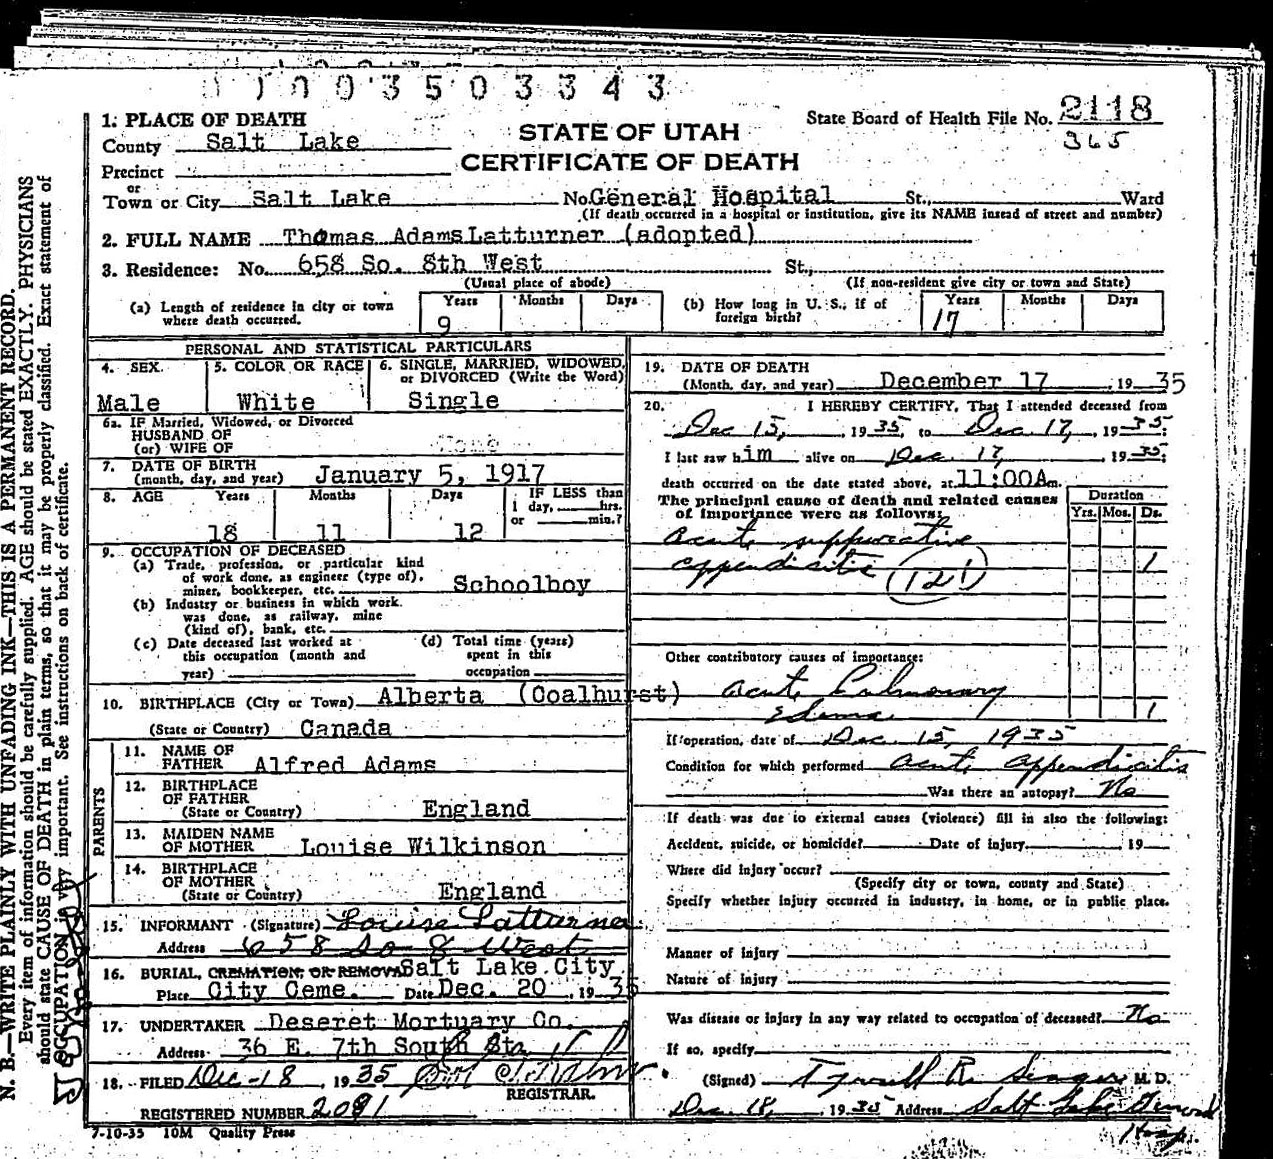 0 1 0 0 3 5 0 3 3 4 3
State Board of Health File No. 2118
365
STATE OF UTAH
CERTIFICATE OF DEATH
1. PLACE OF DEATH
County Salt Lake
Precinct
or
Town or City Salt Lake No. General Hospital St., Ward
(If death occurred in a hospital or institution, give its NAME instead of street and number)
2. FULL NAME Thomas Adams Latturner (adopted)
3. Residence: No. 658 So. 8th West St.,
(Usual place of abode) (If non-resident give city or town and State)
(a) Length of residence in city or town where death occurred. Years 9 Months Days
(b) How long in U. S., if of foreign birth? Years 17 Months Days
PERSONAL AND STATISTICAL PARTICULARS
4. SEX Male
5. COLOR OR RACE White
6. SINGLE, MARRIED, WIDOWED, or DIVORCED (Write the Word) Single
6a. IF Married, Widowed, or Divorced
HUSBAND OF
(or) WIFE OF
7. DATE OF BIRTH
(month, day, and year) January 5, 1917
8. AGE Years 18 Months 11 Days 12
IF LESS than
1 day, hrs.
or min.?
9. OCCUPATION OF DECEASED
(a) Trade, profession, or particular kind
of work done, as engineer (type of),
miner, bookkeeper, etc. Schoolboy
(b) Industry or business in which work
was done, as railway, mine
(kind of), bank, etc.
(c) Date deceased last worked at
this occupation (month and
year)
(d) Total time (years)
spent in this
occupation
10. BIRTHPLACE (City or Town) Alberta (Coalhurst)
(State or Country) Canada
PARENTS
11. NAME OF
FATHER Alfred Adams
12. BIRTHPLACE
OF FATHER
(State or Country) England
13. MAIDEN NAME
OF MOTHER Louise Wilkinson
14. BIRTHPLACE
OF MOTHER
(State or Country) England
15. INFORMANT (Signature) Louise Latturner
Address 658 So 8 West
16. BURIAL, CREMATION, OR REMOVAL Salt Lake City
Place City Ceme. Date Dec. 20, 1935
17. UNDERTAKER Deseret Mortuary Co.
Address 36 E. 7th South St.
18. FILED Dec-18, 1935
REGISTRAR.
REGISTERED NUMBER 2091
7-10-35 10M Quality Press
19. DATE OF DEATH
(Month, day, and year) December 17, 1935
20. I HEREBY CERTIFY, That I attended deceased from
Dec 15, 1935, to Dec. 17, 1935.
I last saw him alive on Dec. 17, 1935.
death occurred on the date stated above, at 11:00Am.
The principal cause of death and related causes
of importance were as follows:
Duration
Yrs. Mos. Ds.
Acute suppurative
appendicitis (121) 1
Other contributory causes of importance:
Acute Pulmonary
Edema 1
If operation, date of Dec. 15, 1935
Condition for which performed acute appendicitis
Was there an autopsy? No
If death was due to external causes (violence) fill in also the following:
Accident, suicide, or homicide? Date of injury 19
Where did injury occur?
(Specify city or town, county and State)
Specify whether injury occurred in industry, in home, or in public place.
Manner of injury
Nature of injury
Was disease or injury in any way related to occupation of deceased? No
If so, specify
(Signed) Tyrrell R. Seager M. D.
Dec 18, 1935 Address Salt Lake General
Hosp.
N. B.—WRITE PLAINLY WITH UNFADING INK—THIS IS A PERMANENT RECORD.
Every item of information should be carefully supplied. AGE should be stated EXACTLY. PHYSICIANS
should state CAUSE OF DEATH in plain terms, so that it may be properly classified. Exact statement of
OCCUPATION is very important. See instructions on back of certificate.